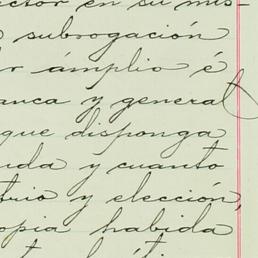 ctor en su mis-
subrogación
ámplio é
anca y general
que disponga
uda y cuanto
trio y elección,
opia habida